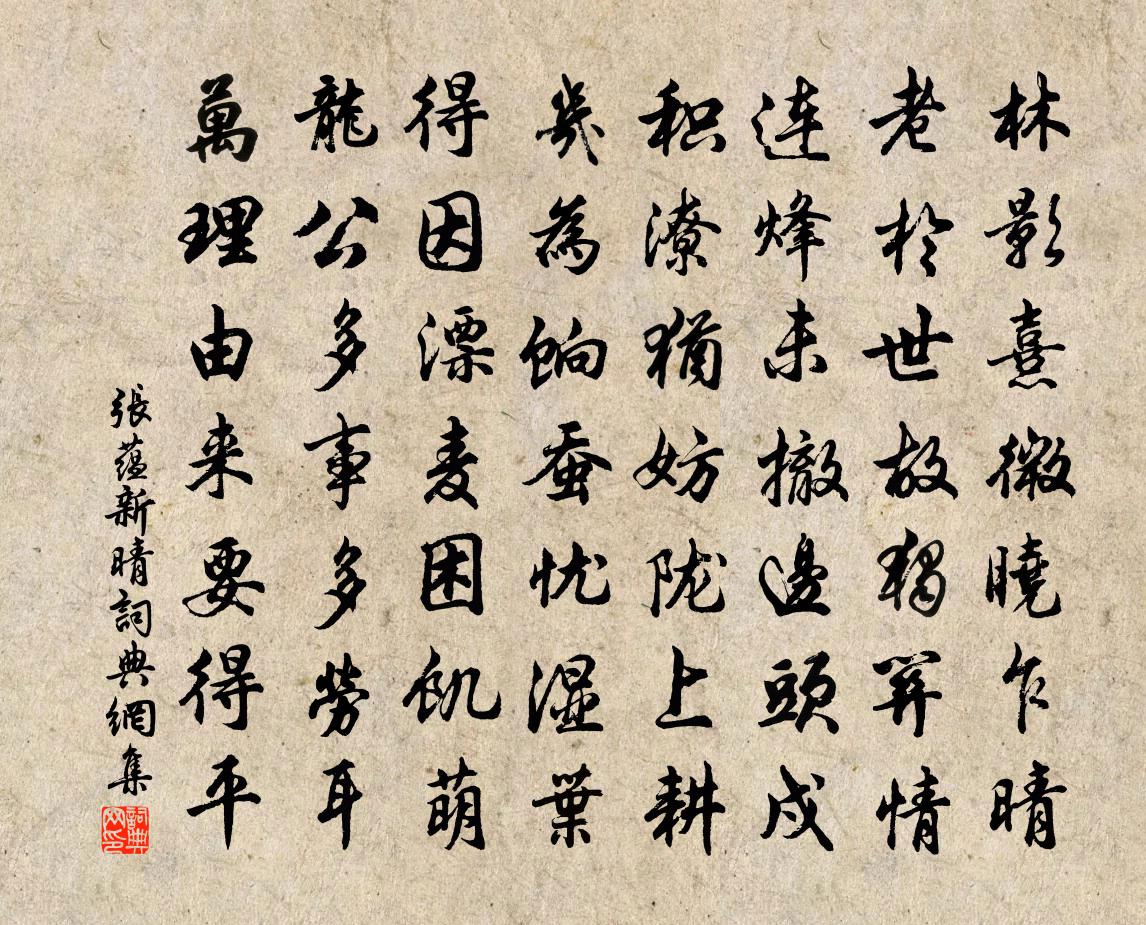 林影熹微曉乍晴
老於世故獨關情
連烽未撤邊頭戍
积潦猶妨陇上耕
幾為餉蚕忧湿葉
得因漂麦困飢萌
龍公多事多勞耳
萬理由来要得平
張蘊新晴詞典網集
詞典网印